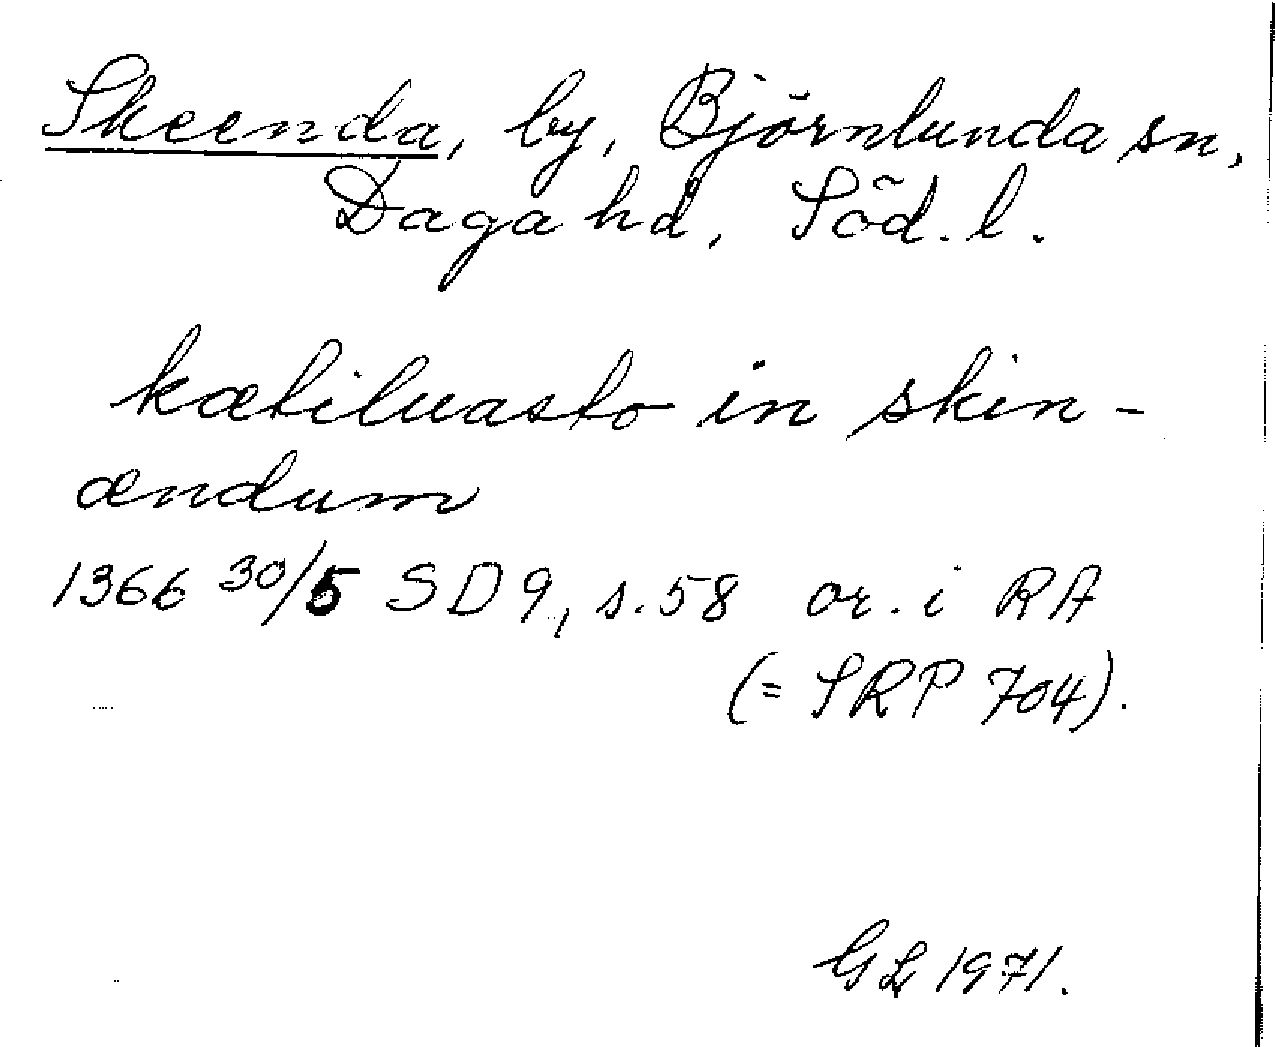 Skeenda, by, Björnlunda sn,
Daga hd, Söd. l.
kætiluasto in skin-
ændum
1366 30/5 SD 9, s. 58 or. i RA
(= SRP 704).
GL 1971.